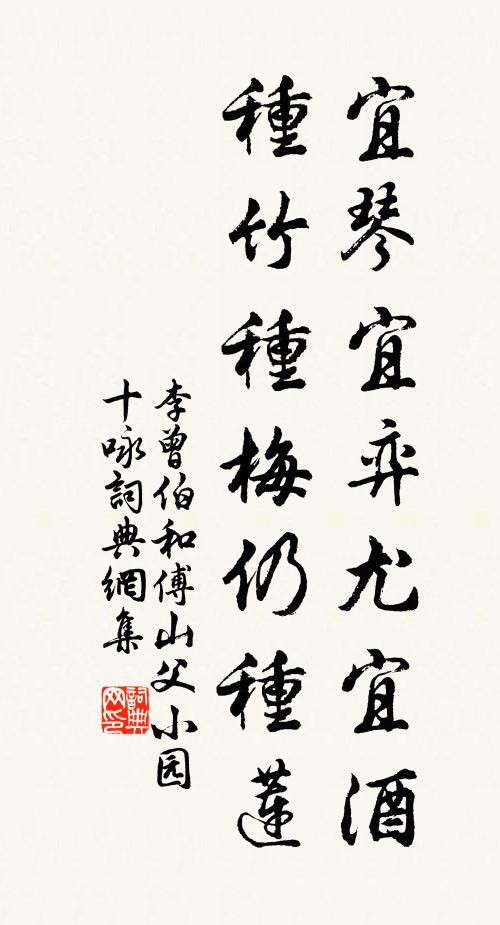 宜琴宜弈尤宜酒
種竹種梅仍種蓮
李曾伯和傅山父小园
十咏詞典網集
詞典网印